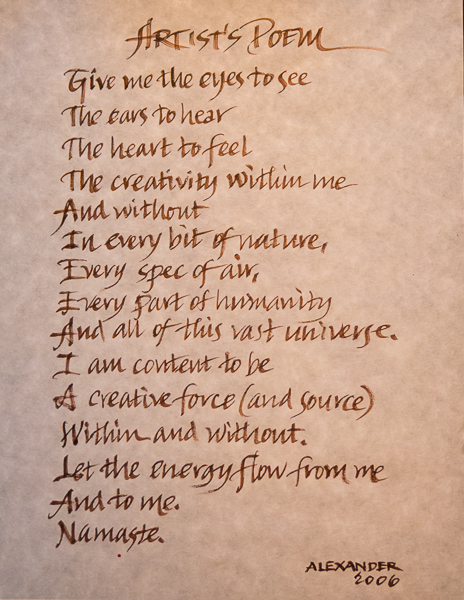 Artist's Poem
Give me the eyes to see
The ears to hear
The heart to feel
The creativity within me
And without
In every bit of nature,
Every spec of air,
Every part of humanity
And all of this vast universe.
I am content to be
A creative force (and source)
Within and without.
Let the energy flow from me
And to me.
Namaste.
ALEXANDER
2006